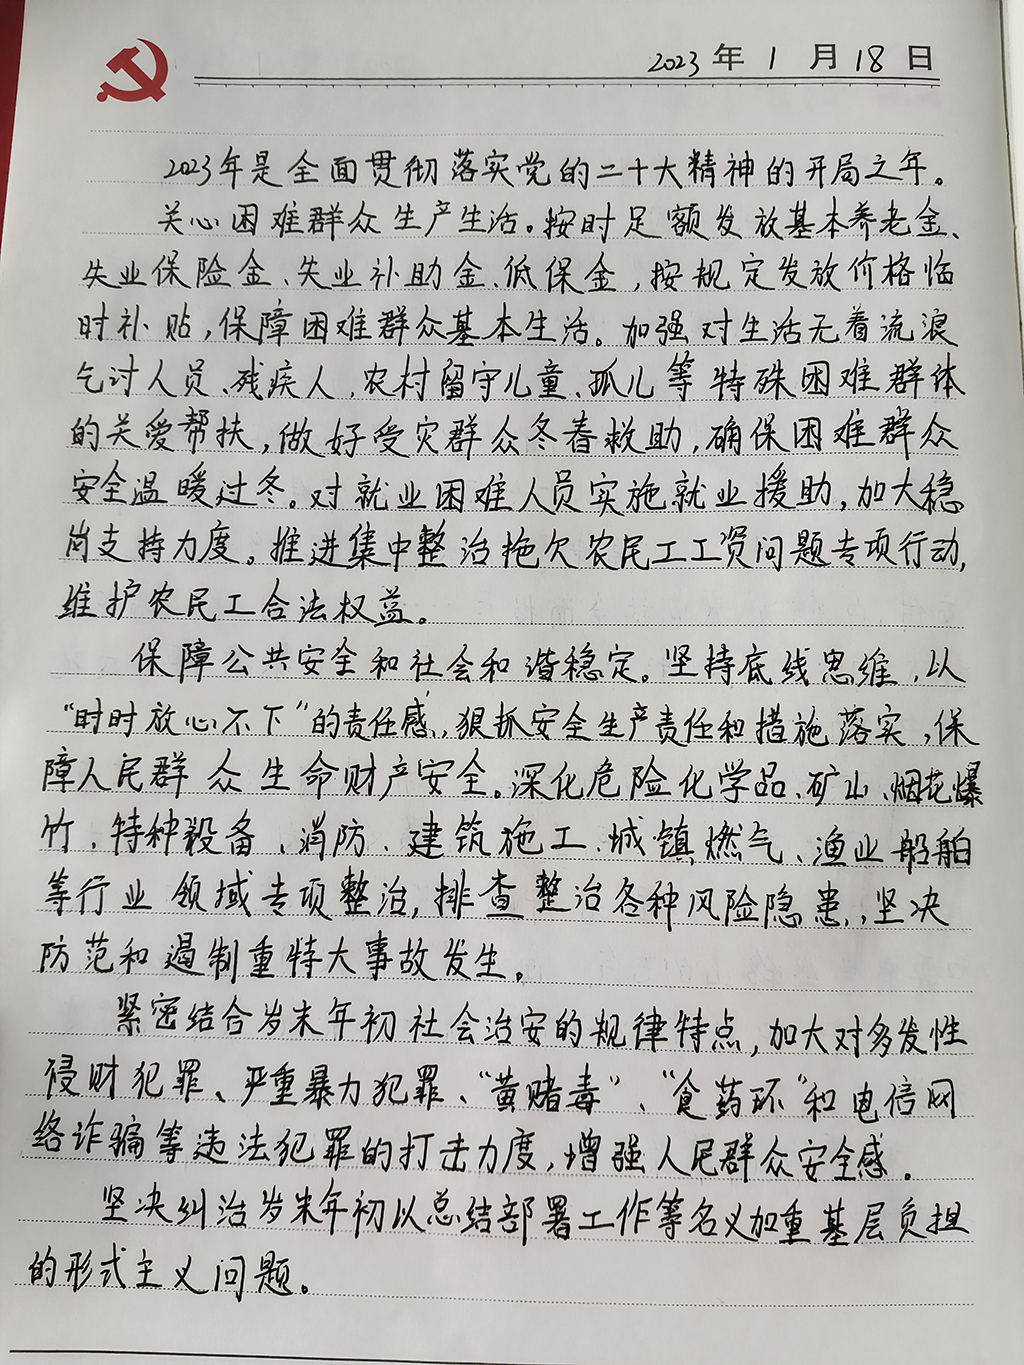 2023年1月18日
2023年是全面贯彻落实党的二十大精神的开局之年。
关心困难群众生产生活。按时足额发放基本养老金、
失业保险金、失业补助金、低保金，按规定发放价格临
时补贴，保障困难群众基本生活。加强对生活无着流浪
乞讨人员、残疾人、农村留守儿童、孤儿等特殊困难群体
的关爱帮扶，做好受灾群众冬春救助，确保困难群众
安全温暖过冬。对就业困难人员实施就业援助，加大稳
岗支持力度。推进集中整治拖欠农民工工资问题专项行动，
维护农民工合法权益。
保障公共安全和社会和谐稳定。坚持底线思维，以
“时时放心不下”的责任感，狠抓安全生产责任和措施落实，保
障人民群众生命财产安全。深化危险化学品、矿山、烟花爆
竹、特种设备、消防、建筑施工、城镇燃气、渔业船舶
等行业领域专项整治，排查整治各种风险隐患，坚决
防范和遏制重特大事故发生。
紧密结合岁末年初社会治安的规律特点，加大对多发性
侵财犯罪、严重暴力犯罪、“黄赌毒”、“食药环”和电信网
络诈骗等违法犯罪的打击力度，增强人民群众安全感。
坚决纠治岁末年初以总结部署工作等名义加重基层负担
的形式主义问题。